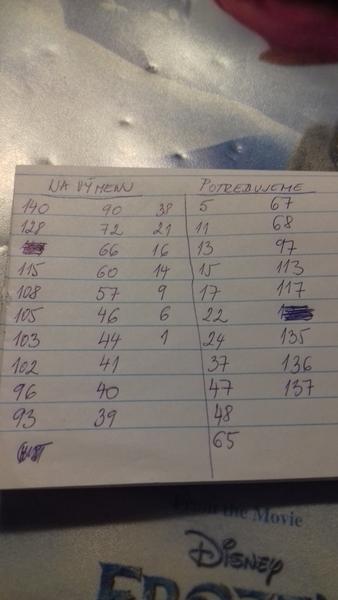 NA VÝMENU POTREBUJEME
140 90 38 5 67
128 72 21 11 68
66 16 13 97
115 60 14 15 113
108 57 9 17 117
105 46 6 22
103 44 1 24 135
102 41 37 136
96 40 47 137
93 39 48
65
From the Movie
DISNEY
FROZEN